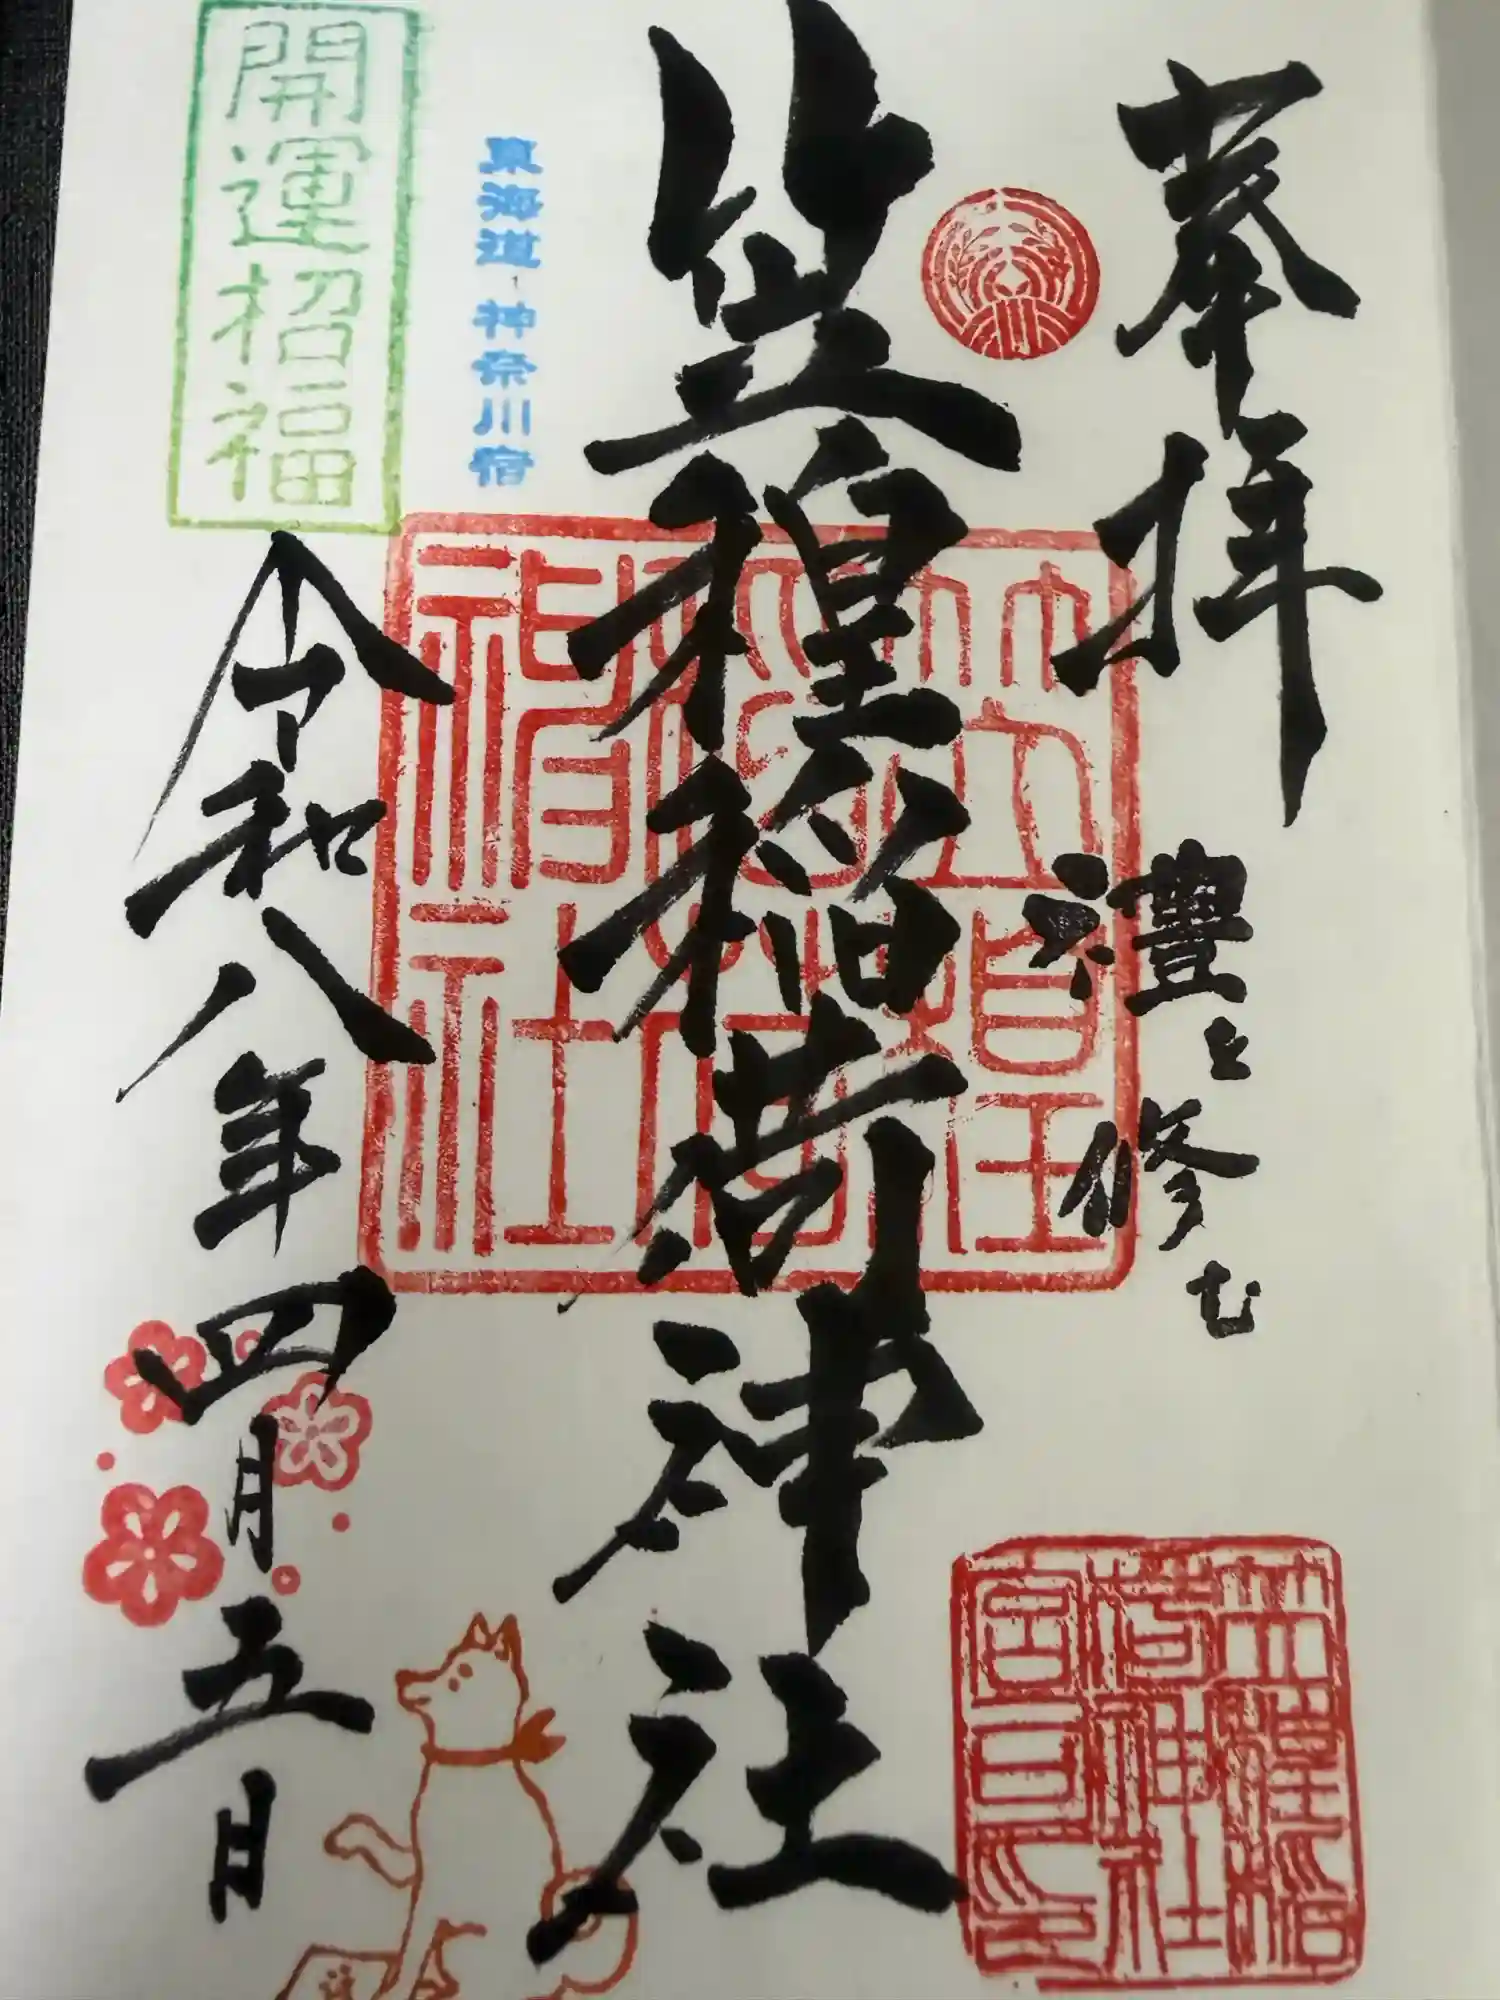 奉拝
禮を修む
笠䅣稲荷神社
東海道・神奈川宿
開運招福
令和八年四月五日
笠䅣稲荷神社
笠䅣稲荷神社宮司之印